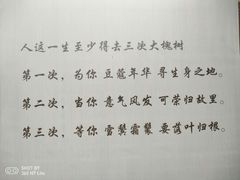 人这一生至少得去三次大槐树
第一次，为你 豆蔻年华 寻生身之地。
第二次，当你 意气风发 可荣归故里。
第三次，等你 雪鬓霜鬟 要落叶归根。
SHOT ON MI 9